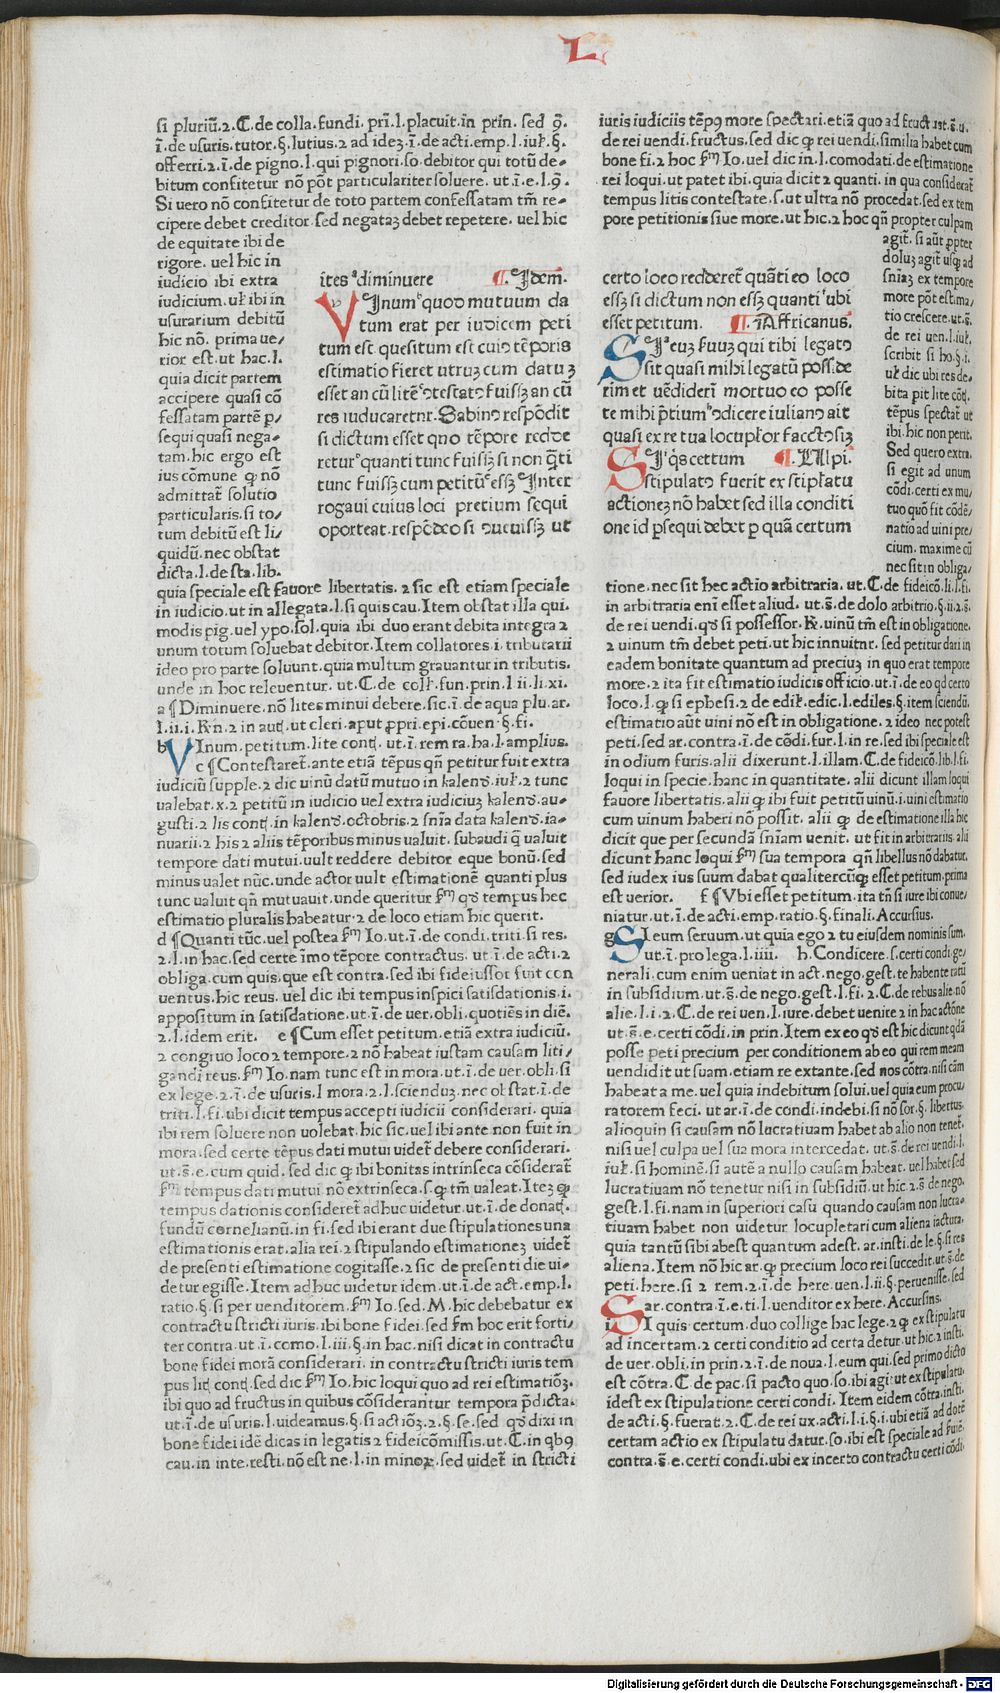 L
si pluriū.⁊.C.de colla.fundi.pri.l.placuit.in prin. sed ꝯ.
ī.de usuris.tutor.§.lutius.⁊ ad ideʒ.ī.de acti.emp.l.iuł.§.
offerri.⁊.ī.de pigno.l.qui pignori.so.debitor qui totū de-
bitum confitetur nō pōt particulariter soluere. ut.ī.e.l.ꝯ.
Si uero nō confitetur de toto partem confessatam tm̄ re-
cipere debet creditor.sed negataʒ debet repetere. uel hic
de equitate ibi de
rigore. uel hic in
iudicio ibi extra
iudicium.uł ibi in
usurarium debitū
hic nō. prima ue/
rior est.ut hac.l.
quia dicit partem
accipere quasi cō
fessatam partē p/
sequi quasi nega-
tam.hic ergo est
ius cōmune ꝙ nō
admittat̄ solutio
particularis.si to/
tum debitū est li/
quidū.nec obstat
dicta.l.de sta.lib.
quia speciale est fauore libertatis.⁊ sic est etiam speciale
in iudicio.ut in allegata.l.si quis cau.Item obstat illa qui.
modis pig.uel ypo.sol.quia ibi duo erant debita integra ⁊
unum totum soluebat debitor.Item collatores.i.tributarii
ideo pro parte soluunt.quia multum grauantur in tributis.
unde in hoc releuentur. ut.C.de coll.fun.prin.l ii.li.xi.
a ¶Diminuere.nō lites minui debere.sic.ī.de aqua plu.ar.
l.ii.i.R̄n.⁊ in aut̄.ut cleri.aput ꝓpri.epi.cōuen.§.fi.
b VInum.petitum.lite cont̄.ut.ī.rem ra.ha.l.amplius.
c ¶Contestaret̄.ante etiā tēpus qn̄ petitur fuit extra
iudiciū supple.⁊ dic uinū datū mutuo in kalend̄.iuł.⁊ tunc
ualebat.x.⁊ petitū in iudicio uel extra iudiciuʒ kalend̄.au-
gusti.⁊ lis cont̄.in kalend̄.octobris.⁊ snīa data kalend̄.ia-
nuarii.⁊ his ⁊ aliis tēporibus minus ualuit.subaudi q̄ ualuit
tempore dati mutui.uult reddere debitor eque bonū.sed
minus ualet nūc.unde actor uult estimationē quanti plus
tunc ualuit qn̄ mutuauit.unde queritur fm̄ qd̄ tempus hec
estimatio pluralis habeatur.⁊ de loco etiam hic querit.
d ¶Quanti tūc.uel postea fm̄ Io.ut.ī.de condi.triti.si res.
⁊.l.in hac.sed certe īmo tēpore contractus. ut.ī.de acti.⁊
obliga.cum quis.que est contra.sed ibi fideiussor fuit con
uentus.hic reus. uel dic ibi tempus inspici satisdationis.i.
appositum in satisdatione.ut.ī.de uer.obli.quotiēs in diē.
⁊.l.idem erit. e ¶Cum esset petitum.etiā extra iudiciū.
⁊ congruo loco ⁊ tempore.⁊ nō habeat iustam causam liti/
gandi reus.fm̄ Io.nam tunc est in mora.ut.ī.de uer.obli.si
ex lege.⁊.ī.de usuris.l mora.⁊.l.sciendūʒ.nec obstat.ī.de
triti.l.fi.ubi dicit tempus accepti iudicii considerari. quia
ibi rem soluere non uolebat.hic sic.uel ibi ante non fuit in
mora.sed certe tēpus dati mutui uidet̄ debere considerari.
ut.s̄.e.cum quid.sed dic ꝙ ibi bonitas intrinseca cōsiderat̄
fm̄ tempus dati mutui nō extrinseca.s.ꝙ tm̄ ualeat.Iteʒ ꝙ
tempus dationis consideret̄ adhuc uidetur.ut.ī.de donat̄.
fundū cornelianū.in fi.sed ibi erant due stipulationes una
estimationis erat.alia rei.⁊ stipulando estimationeʒ uidet̄
de presenti estimatione cogitasse.⁊ sic de presenti die ui-
detur egisse.Item adhuc uidetur idem.ut.ī.de act.emp.l.
ratio.§.si per uenditorem.fm̄ Io.sed.M.hic debebatur ex
contractu stricti iuris.ibi bone fidei.sed fm̄ hoc erit forti/
ter contra.ut.ī.como.l.iii.§.in hac.nisi dicat in contractu
bone fidei morā considerari.in contractu stricti iuris tem
pus lit̄ cont̄.sed dic fm̄ Io.hic loqui quo ad rei estimatiōʒ.
ibi quo ad fructus in quibus cōsiderantur tempora p̄dicta.
ut.ī.de usuris.l.uideamus.§.si actiōʒ.⁊.§.se.sed qd̄ dixi in
bone fidei idē dicas in legatis ⁊ fideicōmissis.ut.C.in qbꝯ
cau.in inte.resti.nō est ne.l.in minoꝝ.sed uidet̄ in stricti
ites ᵃdiminuere ¶.Idem.
VInum ᵇquod mutuum da
tum erat per iudicem peti
tum est.quesitum est cuiꝯ tēporis
estimatio fieret utruʒ cum datuʒ
esset an cū litē ᶜꝯtestatꝯ fuissʒ an cū
res iudicaretnr.Sabinꝯ respōdit
si dictum esset qno tēpore redde
retur ᵈquanti tunc fuissʒ si non q̄ti
tunc fuissʒ cum petitū ᵉessʒ Inter
rogaui cuius loci pretium sequi
oporteat.respōdeo si ꝯueuissʒ ut
certo loco redderet̄ quāti eo loco
essʒ si dictum non essʒ quanti ᶠubi
esset petitum. ¶.Affricanus.
SI ᵍeuʒ ẜuuʒ qui tibi legatꝯ
sit quasi mihi legatū poss:de
rim et uēdiderī mortuo eo posse
te mihi p̄tium ʰꝯdicere iulianꝯ ait
quasi ex re tua locupłor facctꝯ siʒ
SI ⁱq̄s cettum ¶.Ulpi.
stipulatꝯ fuerit ex stipłatu
actioneʒ nō habet sed illa conditi
one id ꝑsequi debet ꝑ quā certum
iuris iudiciis tēpꝯ more spectari.etiā quo ad fruct̄.ut.s̄.u.
de rei uendi.fructus.sed dic ꝙ rei uendi.similia habet cum
bone fi.⁊ hoc fm̄ Io.uel dic in.l.comodati.de estimatione
rei loqui.ut patet ibi.quia dicit ⁊ quanti.in qua considerat̄
tempus litis contestate.s.ut ultra nō procedat.sed ex tem
pore petitionis siue more.ut hic.⁊ hoc qn̄ propter culpam
agit̄.si aūt ꝓpter
doluʒ agit usꝙ ad
snīaʒ ex tempore
more pōt estima/
tio crescere.ut.s̄.
de rei uen.l.iuł.
scribit si ho.§.i.
uł dic ubi res de-
bita pit lite cōt̄.
tēpus spectat̄ ut
ibi.hic non perit.
Sed quero extra.
si egit ad unum
cōdi.certi ex mu/
tuo quō fit cōdē-
natio ad uini pre/
cium.maxime cū
nec sit in obliga/
tione.nec sit hec actio arbitraria.ut.C.de fideicō.li.l.fi.
in arbitraria enī esset aliud. ut.s̄.de dolo arbitrio.§.ii.⁊.s̄.
de rei uendi.qd̄ si possessor.R̄.uinū tm̄ est in obligatione.
⁊ uinum tm̄ debet peti.ut hic innuitnr.sed petitur dari in
eadem bonitate quantum ad preciuʒ in quo erat tempore
more.⁊ ita fit estimatio iudicis officio.ut.ī.de eo qd certo
loco.l.ꝙ si ephesi.⁊ de edił.edic.l.ediles.§.item sciendū.
estimatio aūt uini nō est in obligatione.⁊ ideo nec potest
peti.sed ar.contra.ī.de cōdi.fur.l.in re.sed ibi speciale est
in odium furis.alii dixerunt.l.illam.C.de fideicō.lib.l.fi.
loqui in specie.hanc in quantitate. alii dicunt illam loqui
fauore libertatis.alii ꝙ ibi fuit petitū uinū.i.uini estimatio
cum uinum haberi nō possit. alii ꝙ de estimatione illa hic
dicit que per secundā snīam uenit. ut fit in arbitrariis. alii
dicunt hanc loqui fm̄ sua tempora qn̄ libellus nō dabatur.
sed iudex ius suum dabat qualitercūꝙ esset petitum.prima
est uerior. f ¶Vbi esset petitum.ita tn̄ si iure ibi conue/
niatur.ut.ī.de acti.emp.ratio.§.finali.Accursius.
g SI eum seruum.ut quia ego ⁊ tu eiusdem nominis sum.
ut.ī.pro lega.l.iiii. h.Condicere.s.certi condi.ge/
nerali.cum enim ueniat in act.nego.gest.te habente ratū
in subsidium.ut.s̄.de nego.gest.l.fi.⁊.C.de rebus alie.nō
alie.l.i.⁊.C.de rei uen.l.iure.debet uenire ⁊ in hac actōne
ut.s̄.e.certi cōdi.in prin.Item ex eo qd̄ est hic dicunt qdā
posse peti precium per conditionem ab eo qui rem meam
uendidit ut suam.etiam re extante.sed nos cōtra.nisi cām
habeat a me.uel quia indebitum solui.uel quia eum procu
ratorem feci.ut ar.ī.de condi.indebi.si nō sor.§.libertus.
alioquin si causam nō lucratiuam habet ab alio non tenet̄.
nisi uel culpa uel sua mora intercedat. ut.s̄.de rei uendi.l.
iuł.si hominē.si autē a nullo causam habeat. uel habet sed
lucratiuam nō tenetur nisi in subsidiū.ut hic.⁊.s̄ de nego.
gest.l.fi.nam in superiori casu quando causam non lucra-
tiuam habet non uidetur locupletari cum aliena iactura.
quia tantū sibi abest quantum adest. ar.insti.de le.§.si res
aliena.Item nō hic ar.ꝙ precium loco rei succedit.ut.s̄.de
peti.here.si ⁊ rem.⁊.ī.de here.uen.l.ii.§.peruenisse.sed
ar.contra.ī.e.ti.l.uenditor ex here.Accursins.
i SI quis certum.duo collige hac lege.⁊ ꝙ ex stipulatu
ad incertam.⁊ certi conditio ad certa detur.ut hic.⁊ insti.
de uer.obli.in prin.⁊.ī.de noua.l.eum qui.sed primo dicto
est cōtra.C.de pac.si pacto quo.so.ibi agi:ut ex stipulatu.
idest ex stipulatione certi condi.Item eidem cōtra.insti.
de acti.§.fuerat.⁊.C.de rei ux.acti.l.i.§.i.ubi etiā ad dotē
certam actio ex stipulatu datur.so.ibi est speciale ad fuiē.
contra.s̄.e.certi condi.ubi ex incerto contractu certi cōdi.
Digitalisierung gefördert durch die Deutsche Forschungsgemeinschaft - DFG